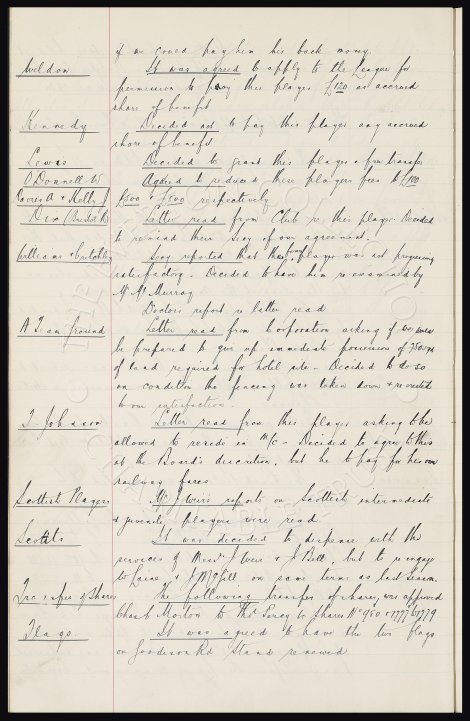 if we could pay him his back money.
Weldon It was agreed to apply to the League for
permission to pay this player £120 as accrued
share of benefit
Kennedy Decided not to pay this player any accrued
share of benefit
Lewis Decided to grant this player a free transfer
O'Donnell W Agreed to reduced these players fees to £100
Davies A & Kelly J £500 & £500 respectively
Dix (Bristol R) Letter read from Club re this player. Decided
to remind their Secy of our agreement.
Williams & Critchley Secy reported that the former player was not progressing
satisfactory. Decided to have him re examined by
Mr McMurray
Doctors report re latter read
Ground Letter read from Corporation asking if we would
be prepared to give up immediate possession of
of land required for hotel site - Decided to do so
on condition the fencing was taken down & re-erected
to our satisfaction.
T. Johnson Letter read from this player asking to be
allowed to reside in M/c - Decided to agree to this
at the Board's discretion, but he to pay for his own
railway fares
Scottish Players Mr J Weir's reports on Scottish intermediate
& juvenile players were read
Scouts It was decided to dispense with the
services of Messrs J Weir & J Bell, but to re-engage
to Laing & J McGill on same terms as last season.
Transfer of Shares The following transfer of shares was approved
Chas E Morton to Thos Percy to Shares Nos 950 & 1777 to 1779
Flags It was agreed to have the two flags
on Goodison Rd Stand renewed